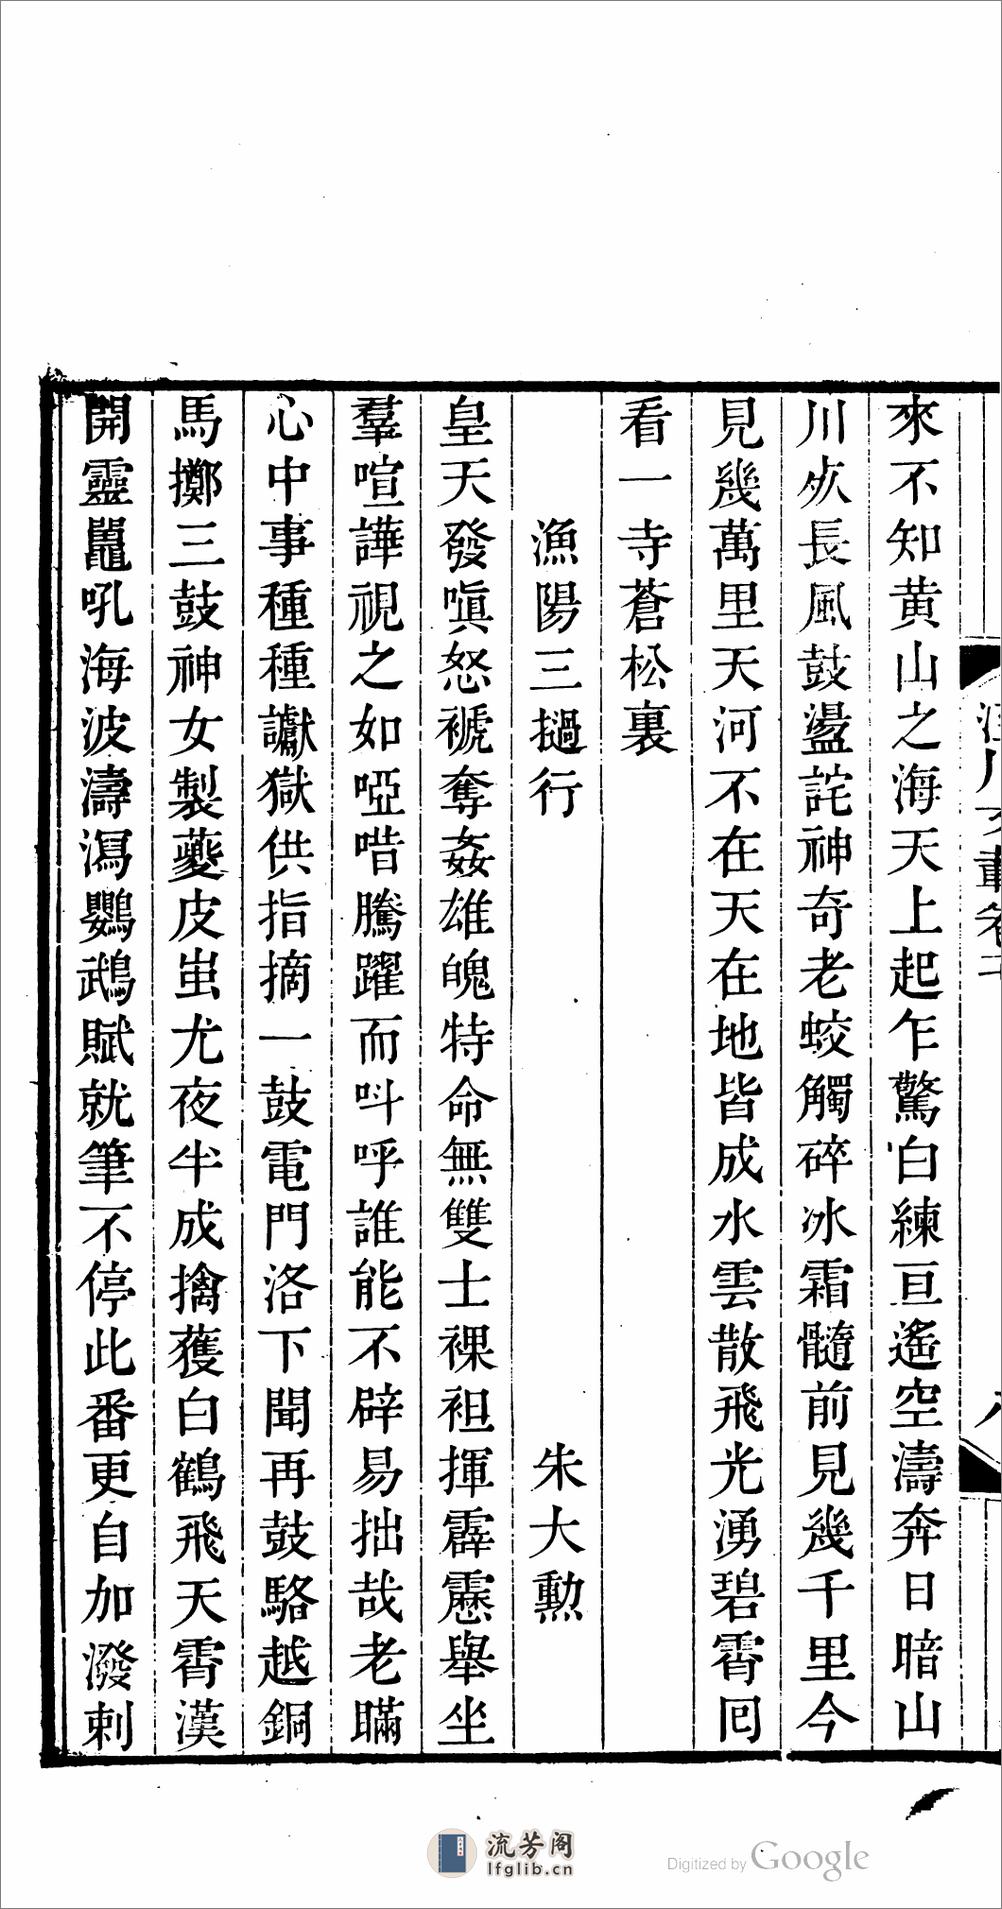 來不知黃山之海天上起乍驚白練亘遙空濤奔日暗山
川灰長風鼓盪詫神奇老蛟觸碎冰霜髓前見幾千里今
見幾萬里天河不在天在地皆成水雲散飛光湧碧霄囘
看一寺蒼松裏
漁陽三撾行 朱大勲
皇天發嗔怒褫奪姦雄魄特命無雙士裸袒揮霹靂舉坐
羣喧譁視之如啞唶騰躍而呌呼誰能不辟易拙哉老瞞
心中事種種讞獄供指摘一鼓電門洛下聞再鼓駱越銅
馬擲三鼓神女製夔皮蚩尤夜半成擒獲白鶴飛天霄漢
開靈鼉吼海波濤瀉鸚鵡賦就筆不停此番更自加潑剌
流芳阁
lfglib.cn
Digitized by Google